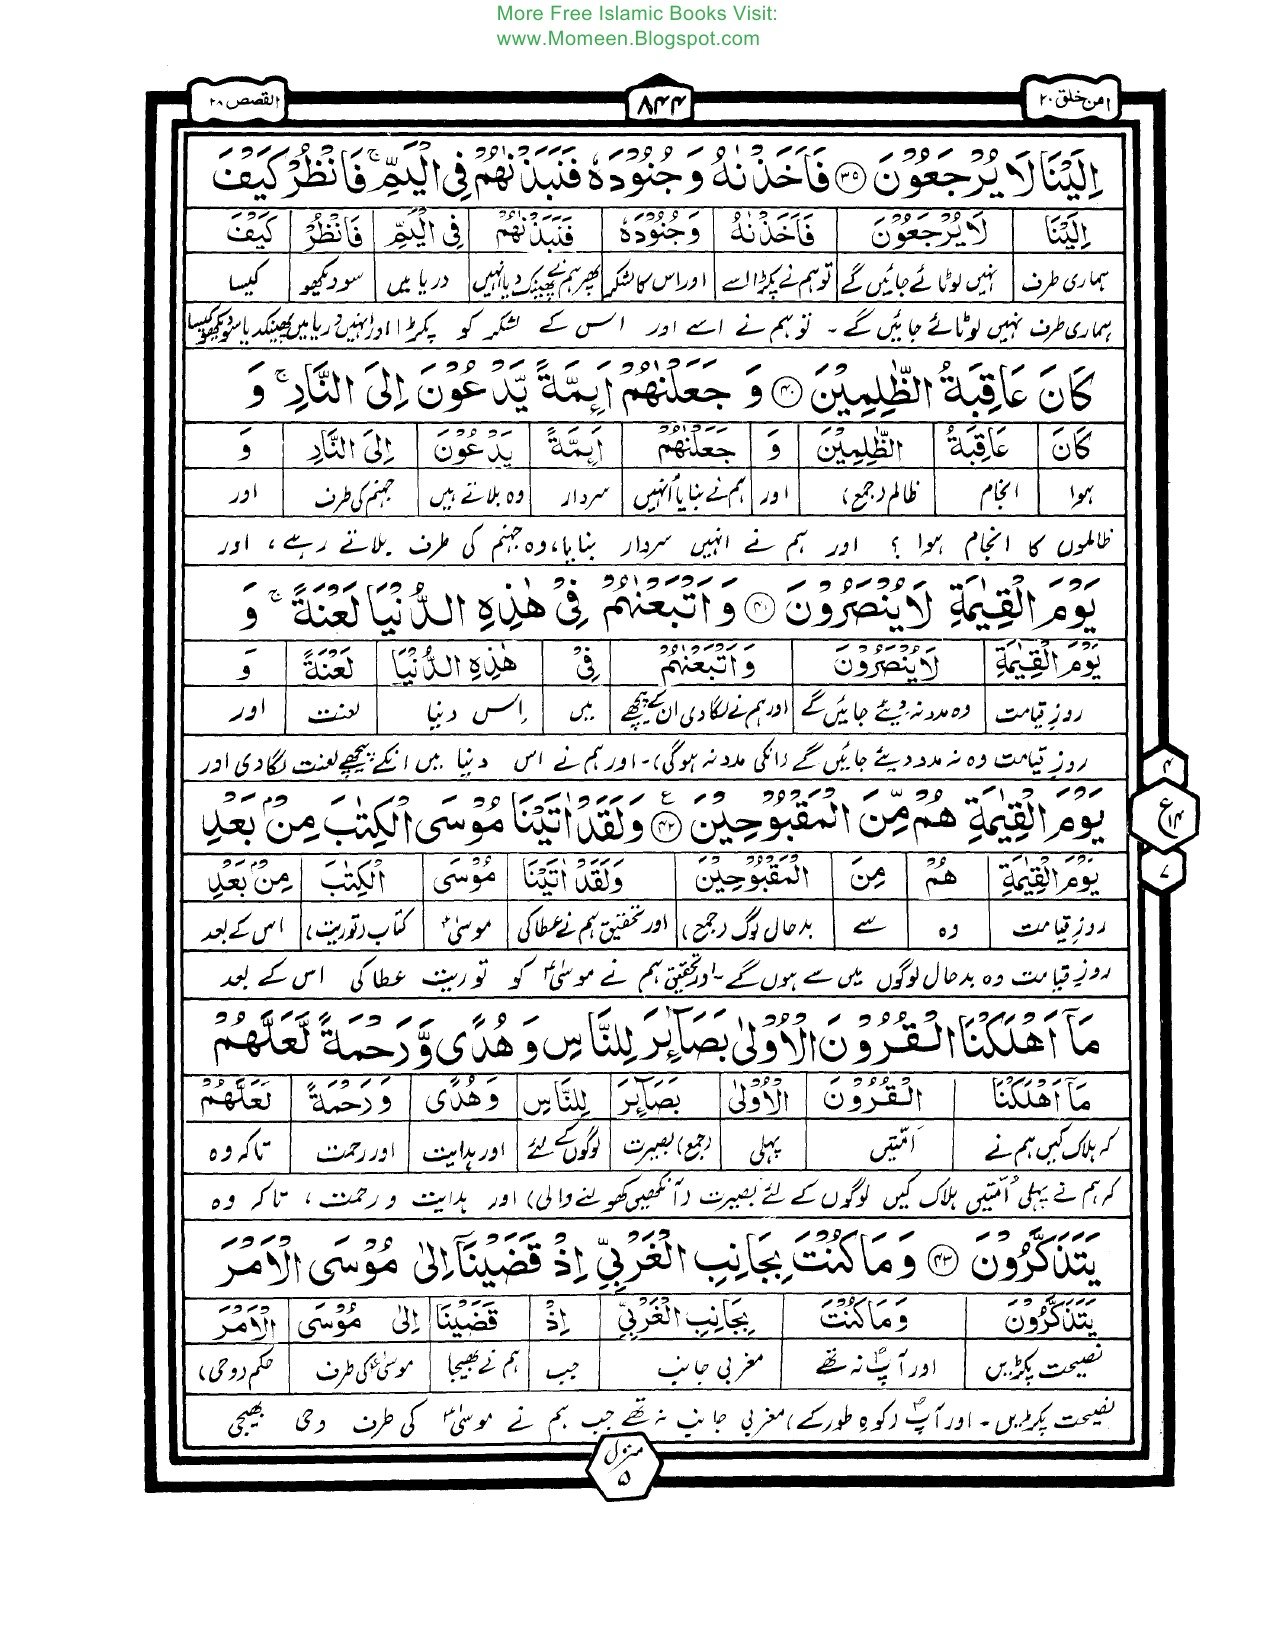 More Free Islamic Books Visit:
www.Momeen.Blogspot.com
امن خلق ۲۰
۸۴۴
القصص ۲۸
اِلَيْنَا لَا يُرْجَعُوْنَ ۝۳۹ فَاَخَذْنٰهُ وَجُنُوْدَهٗ فَنَبَذْنٰهُمْ فِي الْيَمِّ ۚ فَانْظُرْ كَيْفَ
اِلَيْنَا لَا يُرْجَعُوْنَ فَاَخَذْنٰهُ وَجُنُوْدَهٗ فَنَبَذْنٰهُمْ فِي الْيَمِّ فَانْظُرْ كَيْفَ
ہماری طرف نہیں لوٹائے جائیں گے تو ہم نے پکڑا اسے اور اس کا لشکر پھر ہم نے پھینک دیا انہیں دریا میں سو دیکھو کیسا
ہماری طرف نہیں لوٹائے جائیں گے۔ تو ہم نے اسے اور اس کے لشکر کو پکڑا اور انہیں دریا میں پھینکدیا سو دیکھو کیسا
كَانَ عَاقِبَةُ الظّٰلِمِيْنَ ۝۴۰ وَ جَعَلْنٰهُمْ اَئِمَّةً يَّدْعُوْنَ اِلَى النَّارِ ۚ وَ
كَانَ عَاقِبَةُ الظّٰلِمِيْنَ وَ جَعَلْنٰهُمْ اَئِمَّةً يَدْعُوْنَ اِلَى النَّارِ وَ
ہوا انجام ظالم (جمع) اور ہم نے بنایا انہیں سردار وہ بلاتے ہیں جہنم کی طرف اور
ظالموں کا انجام ہوا؟ اور ہم نے انہیں سردار بنایا، وہ جہنم کی طرف بلاتے رہے، اور
يَوْمَ الْقِيٰمَةِ لَا يُنْصَرُوْنَ ۝۴۱ وَاَتْبَعْنٰهُمْ فِيْ هٰذِهِ الدُّنْيَا لَعْنَةً ۚ وَ
يَوْمَ الْقِيٰمَةِ لَا يُنْصَرُوْنَ وَاَتْبَعْنٰهُمْ فِيْ هٰذِهِ الدُّنْيَا لَعْنَةً وَ
روزِ قیامت وہ مدد نہ دیئے جائیں گے اور ہم نے لگا دی ان کے پیچھے میں اس دنیا لعنت اور
روزِ قیامت وہ نہ مدد دیئے جائیں گے (انکی مدد نہ ہوگی)۔ اور ہم نے اس دنیا میں انکے پیچھے لعنت لگا دی اور
يَوْمَ الْقِيٰمَةِ هُمْ مِّنَ الْمَقْبُوْحِيْنَ ۝۴۲ ع وَلَقَدْ اٰتَيْنَا مُوْسَى الْكِتٰبَ مِنْۢ بَعْدِ
۴
ع ۱۴
۷
يَوْمَ الْقِيٰمَةِ هُمْ مِنَ الْمَقْبُوْحِيْنَ وَلَقَدْ اٰتَيْنَا مُوْسَى الْكِتٰبَ مِنْۢ بَعْدِ
روزِ قیامت وہ سے بدحال لوگ (جمع) اور تحقیق ہم نے عطا کی موسیٰؑ کتاب (توریت) اس کے بعد
روزِ قیامت وہ بدحال لوگوں میں سے ہوں گے۔ اور تحقیق ہم نے موسیٰؑ کو توریت عطا کی اس کے بعد
مَآ اَهْلَكْنَا الْقُرُوْنَ الْاُوْلٰى بَصَآئِرَ لِلنَّاسِ وَهُدًى وَّرَحْمَةً لَّعَلَّهُمْ
مَآ اَهْلَكْنَا الْقُرُوْنَ الْاُوْلٰى بَصَآئِرَ لِلنَّاسِ وَهُدًى وَرَحْمَةً لَعَلَّهُمْ
کہ ہلاک کیں ہم نے اُمتیں پہلی (جمع) بصیرت لوگوں کے لئے اور ہدایت اور رحمت تاکہ وہ
کہ ہم نے پہلی اُمتیں ہلاک کیں لوگوں کے لئے بصیرت (آنکھیں کھولنے والی) اور ہدایت و رحمت، تاکہ وہ
يَتَذَكَّرُوْنَ ۝۴۳ وَمَا كُنْتَ بِجَانِبِ الْغَرْبِيِّ اِذْ قَضَيْنَآ اِلٰى مُوْسَى الْاَمْرَ
يَتَذَكَّرُوْنَ وَمَا كُنْتَ بِجَانِبِ الْغَرْبِيِّ اِذْ قَضَيْنَا اِلٰى مُوْسَى الْاَمْرَ
نصیحت پکڑیں اور آپؐ نہ تھے مغربی جانب جب ہم نے بھیجا موسیٰؑ کی طرف حکم (وحی)
نصیحت پکڑیں۔ اور آپؐ (کوہِ طور کے) مغربی جانب نہ تھے جب ہم نے موسیٰؑ کی طرف وحی بھیجی
منزل ۵